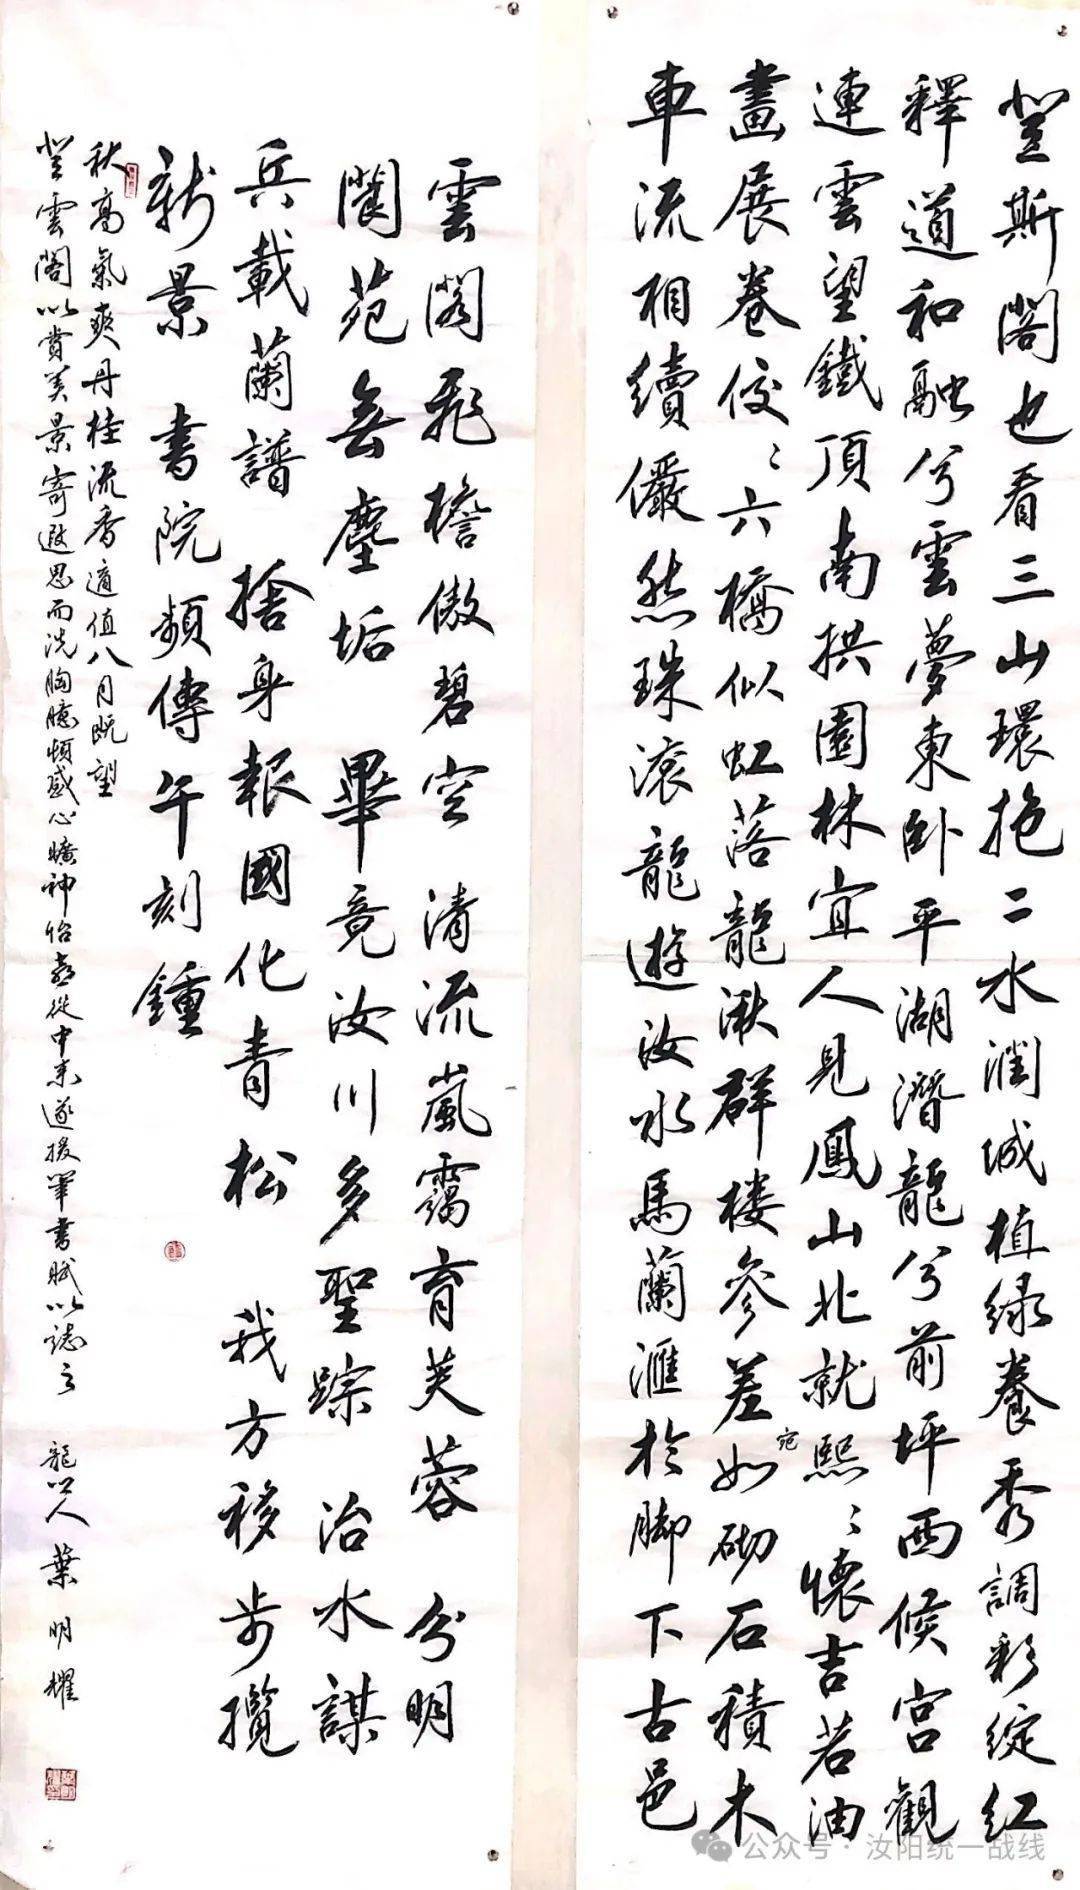 登斯閣也看三山環抱二水潤城植綠養秀調彩綻紅
釋道和融兮雲夢東卧平湖潛龍兮前坪西候宮觀
連雲望鐵頂南拱園林宜人見鳳山北就熙〻懷吉若油
畫展卷佼〻六橋似虹落龍湫群楼參差如砌石積木
宛
車流相續儼然珠滾龍遊汝水馬蘭滙於脚下古邑
雲閣飛檐傲碧空 清流嵐靄育芙蓉 分明
閬苑無塵垢 畢竟汝川多聖踪 治水謀
兵載蘭譜 捨身報國化青松 我方移步攬
新景 書院頻傳午刻鍾
秋高氣爽丹桂流香適值八月既望
登雲閣以賞美景寄遐思而洗胸臆頓感心曠神怡喜從中来遂援筆書賦以誌之 龍山人 葉明耀
公众号·汝阳统一战线